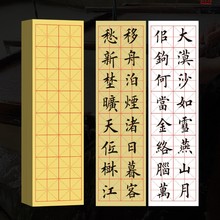 大漠沙如雪燕山月
佀鉤何當金絡腦萬
移舟泊煙渚日暮客
愁新埜曠天仾樹江